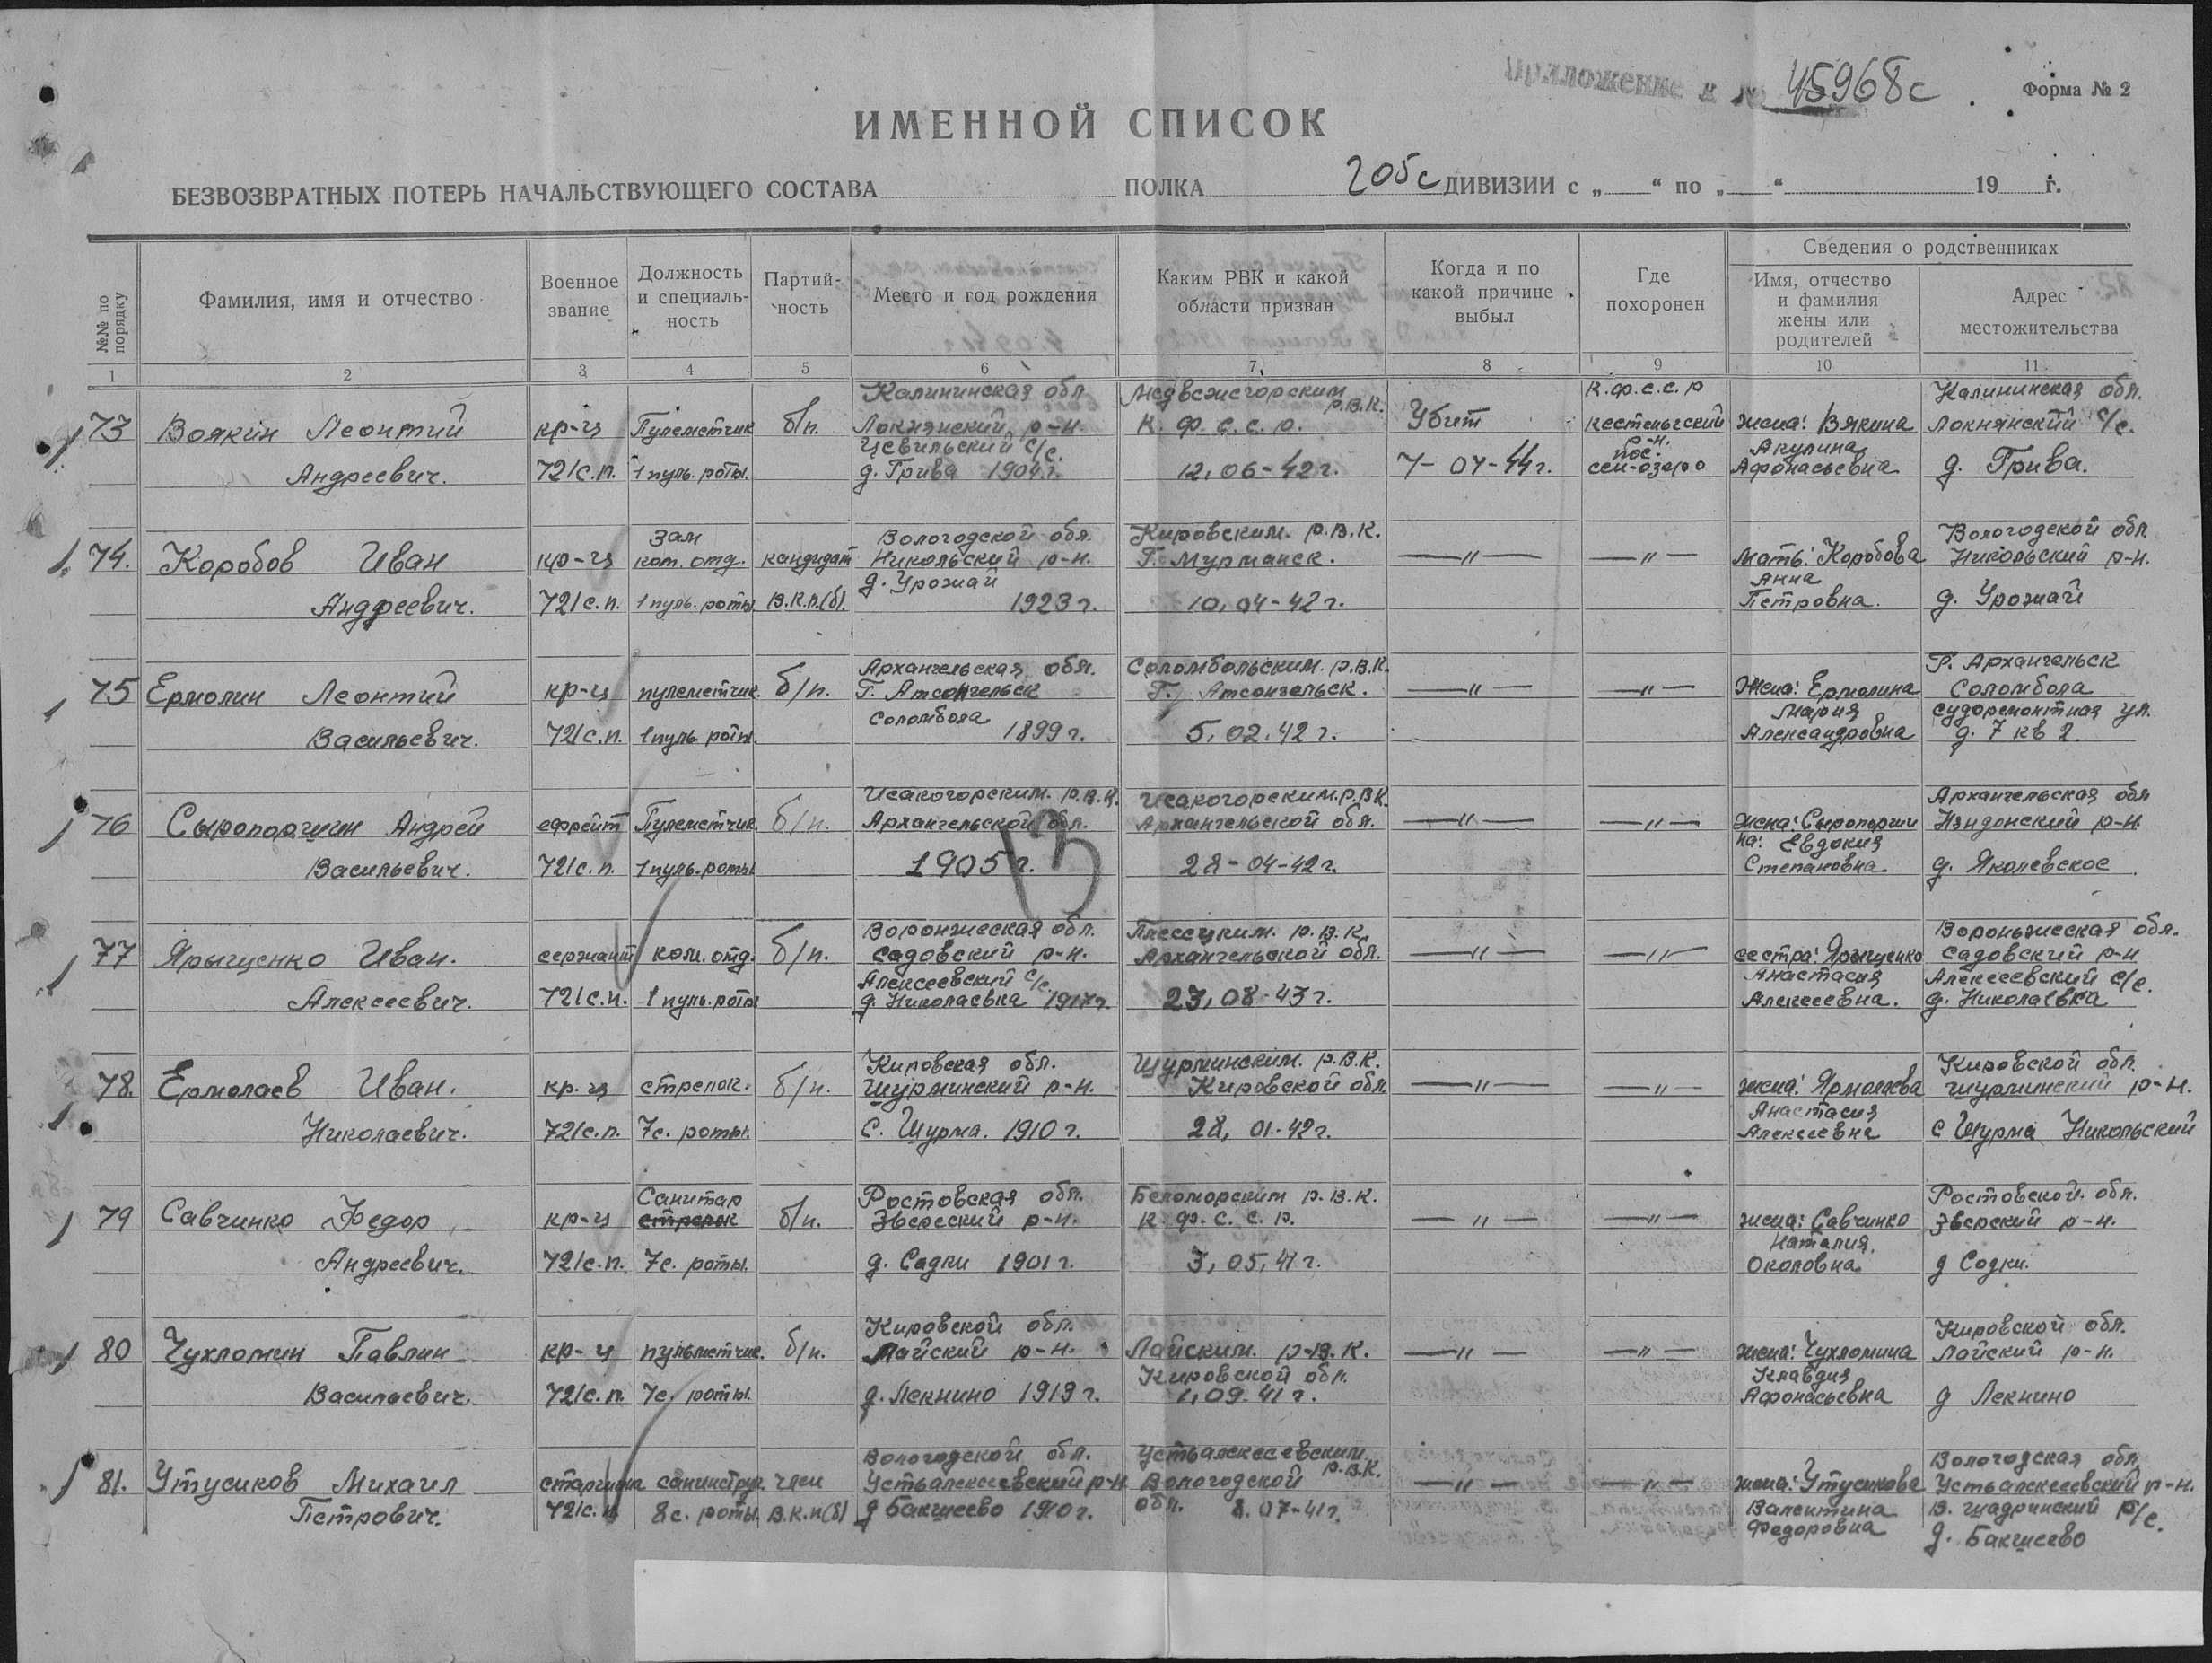 приложение к № 45968с
Форма № 2
ИМЕННОЙ СПИСОК
БЕЗВОЗВРАТНЫХ ПОТЕРЬ НАЧАЛЬСТВУЮЩЕГО СОСТАВА ПОЛКА 205с ДИВИЗИИ с „ “ по „ “ 19 г.
№№ по порядку
Фамилия, имя и отчество
Военное звание
Должность и специаль-ность
Партий-ность
Место и год рождения
Каким РВК и какой области призван
Когда и по какой причине выбыл
Где похоронен
Сведения о родственниках
Имя, отчество и фамилия жены или родителей
Адрес местожительства
1 2 3 4 5 6 7 8 9 10 11
Калининская обл. Медвежегорским р.в.к. К.ф.с.с.р Калининская обл.
73 Воякин Леонтий кр-ц Пулеметчик б/п. Локнянский р-н. К.ф.с.с.р. Убит кестеньгский р-н. жена: Вякина Локнянский с/с.
Цевильский с/с. пос. Акулина
Андреевич. 721с.п. 1 пуль. роты. д. Грива 1904.г. 12,06-42г. 7-04-44г. сен-озеро Афонасьевна д. Грива.
Зам Вологодской обл. Кировским. р.в.к. Вологодской обл.
74. Коробов Иван кр-ц ком. отд. кандидат Никольский р-н. Г. Мурманск. —„— —„— мать: Коробова Никольский р-н.
д. Урожай Анна
Андреевич. 721с.п. 1 пуль. роты В.К.п.(б). 1923г. 10,04-42г. Петровна. д. Урожай
Архангельская обл. Соломбольским. р.в.к. Г. Архангельск
75 Ермолин Леонтий кр-ц пулеметчик. б/п. Г. Атсонгельск Г. Атсонгельск. —„— —„— Жена: Ермолина Соломбола
Соломбола Мария судоремонтная ул.
Васильевич. 721с.п. 1 пуль роты. 1899г. 5,02.42г. Александровна д. 7 кв 2.
Исакогорским. р.в.к. Исакогорским.р.вк. Архангельская обл
76 Сыропоршин Андрей ефрейт Пулеметчик. б/п. Архангельской обл. Архангельской обл. —„— —„— жена: Сыропорши Нэндонский р-н.
на: Евдокия
Васильевич. 721с.п. 1 пуль.роты 1905г. 28-04-42г. Степановна. д. Яколевское
13
Воронжеская обл. Плесецким. р.в.к. Вороньжеская обл.
77 Ярыщенко Иван. сержант ком. отд. б/п. садовский р-н. Архангельской обл. —„— —„— сестра: Ярыщенко садовский р-н
Алексеевский с/с. Анастасия Алексеевский с/с.
Алексеевич. 721с.п. 1 пуль.роты д. Николаевка 1917г. 23,08-43г. Алексеевна. д. Николаевка
Кировская обл. Шурминским. р.в.к. Кировской обл.
78. Ермолаев Иван. кр-ц стрелок. б/п. Шурминский р-н. Кировской обл. —„— —„— жена: Ярмолаева шурминский р-н.
Анастасия
Николаевич. 721с.п. 7с. роты. с. Шурма. 1910г. 28, 01-42г. Алексеевна с Шурма Никольский
Санитар Ростовская обл. Беломорским р.в.к. Ростовской обл.
79 Савчинко Федор кр-ц стрелок б/п. Звереский р-н. К.ф.с.с.р. —„— —„— жена: Савчинко Зверский р-н.
Наталия.
Андреевич. 721с.п. 7с. роты. д. Садки 1901г. 3,05,41г. Околовна. д Содки.
Кировской обл. Кировской обл.
80 Чухломин Павлин кр-ц пульметчик. б/п. Лайский р-н. Лайским. р-в.к. —„— —„— жена: Чухломина Лайский р-н.
Кировской обл. Клавдия
Василаевич. 721с.п. 7с. роты. д. Лекнино 1919г. 1,09.41г. Афонасьевна д Лекнино
Вологодской обл. Устьалексеевским Вологодская обл
81. Утусиков Михаил старшина санинструк. член Устьалексеевский р-н Вологодской р.в.к. —„— —„— жена: Утусикова Устьалексеевский р-н.
Петрович. 721с.п. 8с. роты. В.к.п(б) д Бакшеево 1910г. обл. 8.07-41г. Валентина В. шадринский с/с.
Федоровна д. Бакшеево